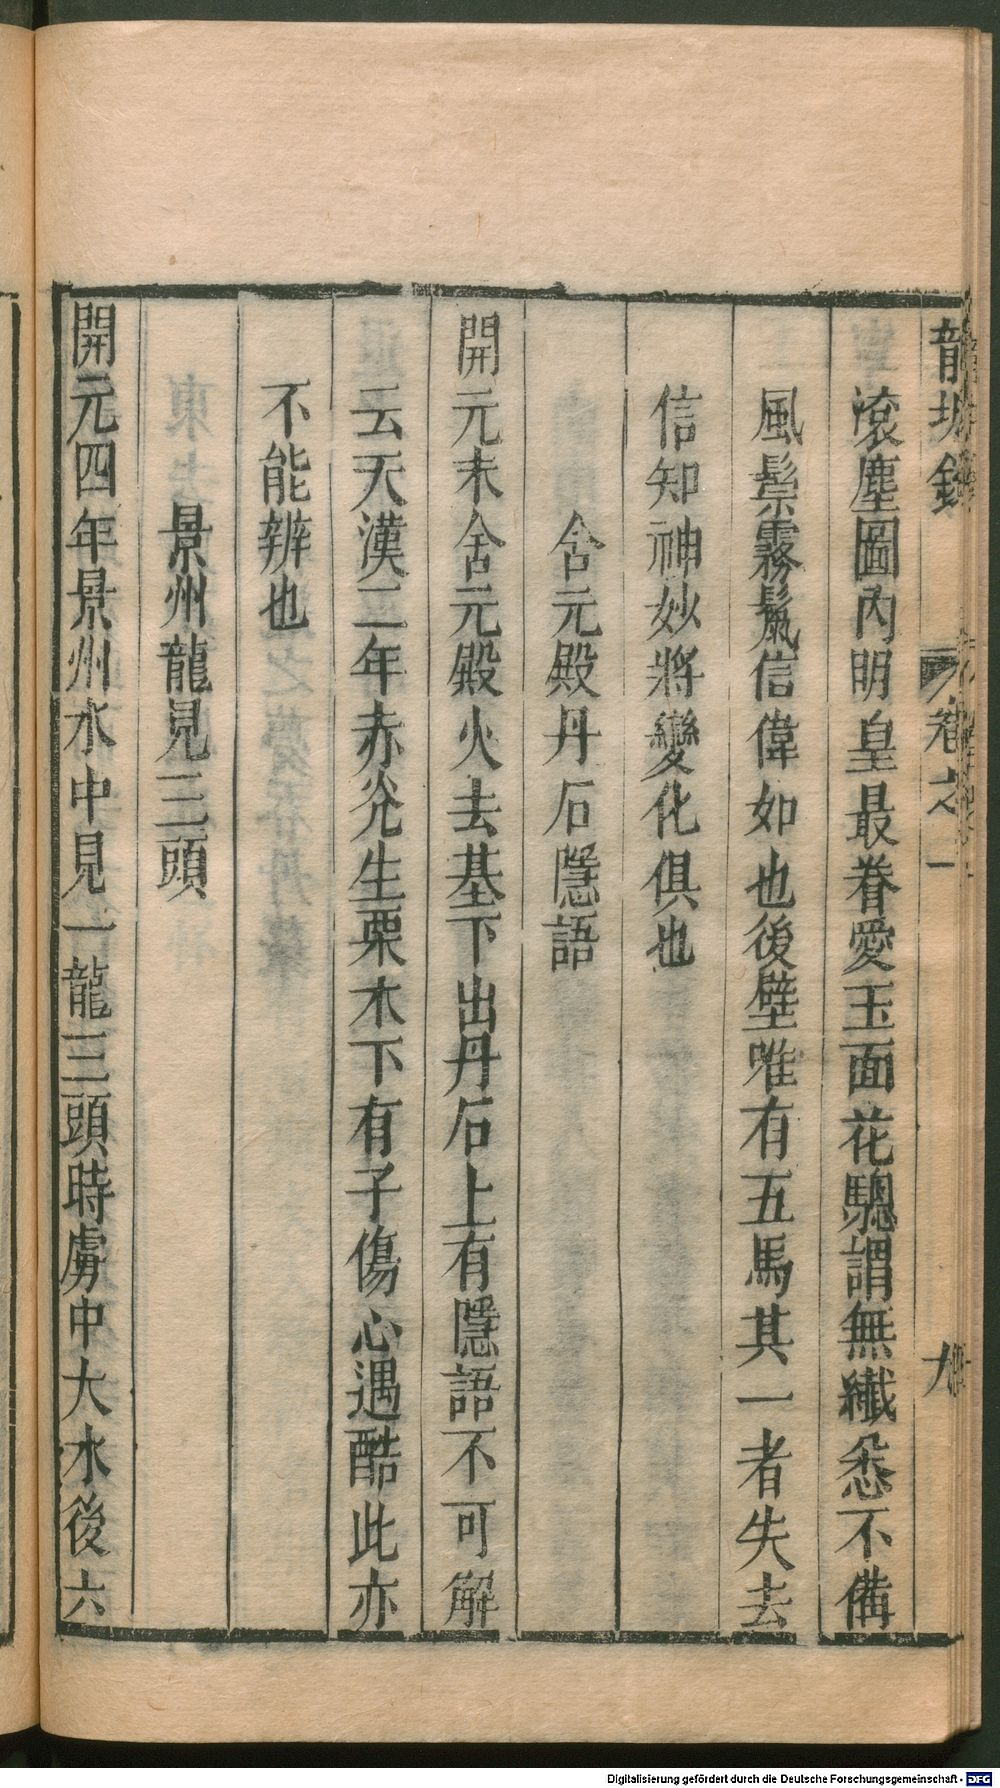 龍城錄 卷之一 九
滾塵圖內明皇最眷愛玉面花驄謂無纎悉不備
風鬃霧鬣信偉如也後壁唯有五馬其一者失去
信知神妙將變化俱也
含元殿丹石隱語
開元末含元殿火去基下出丹石上有隱語不可解
云天漢二年赤光生栗木下有子傷心遇酷此亦
不能辨也
景州龍見三頭
開元四年景州水中見一龍三頭時虜中大水後六
Digitalisierung gefördert durch die Deutsche Forschungsgemeinschaft - DFG